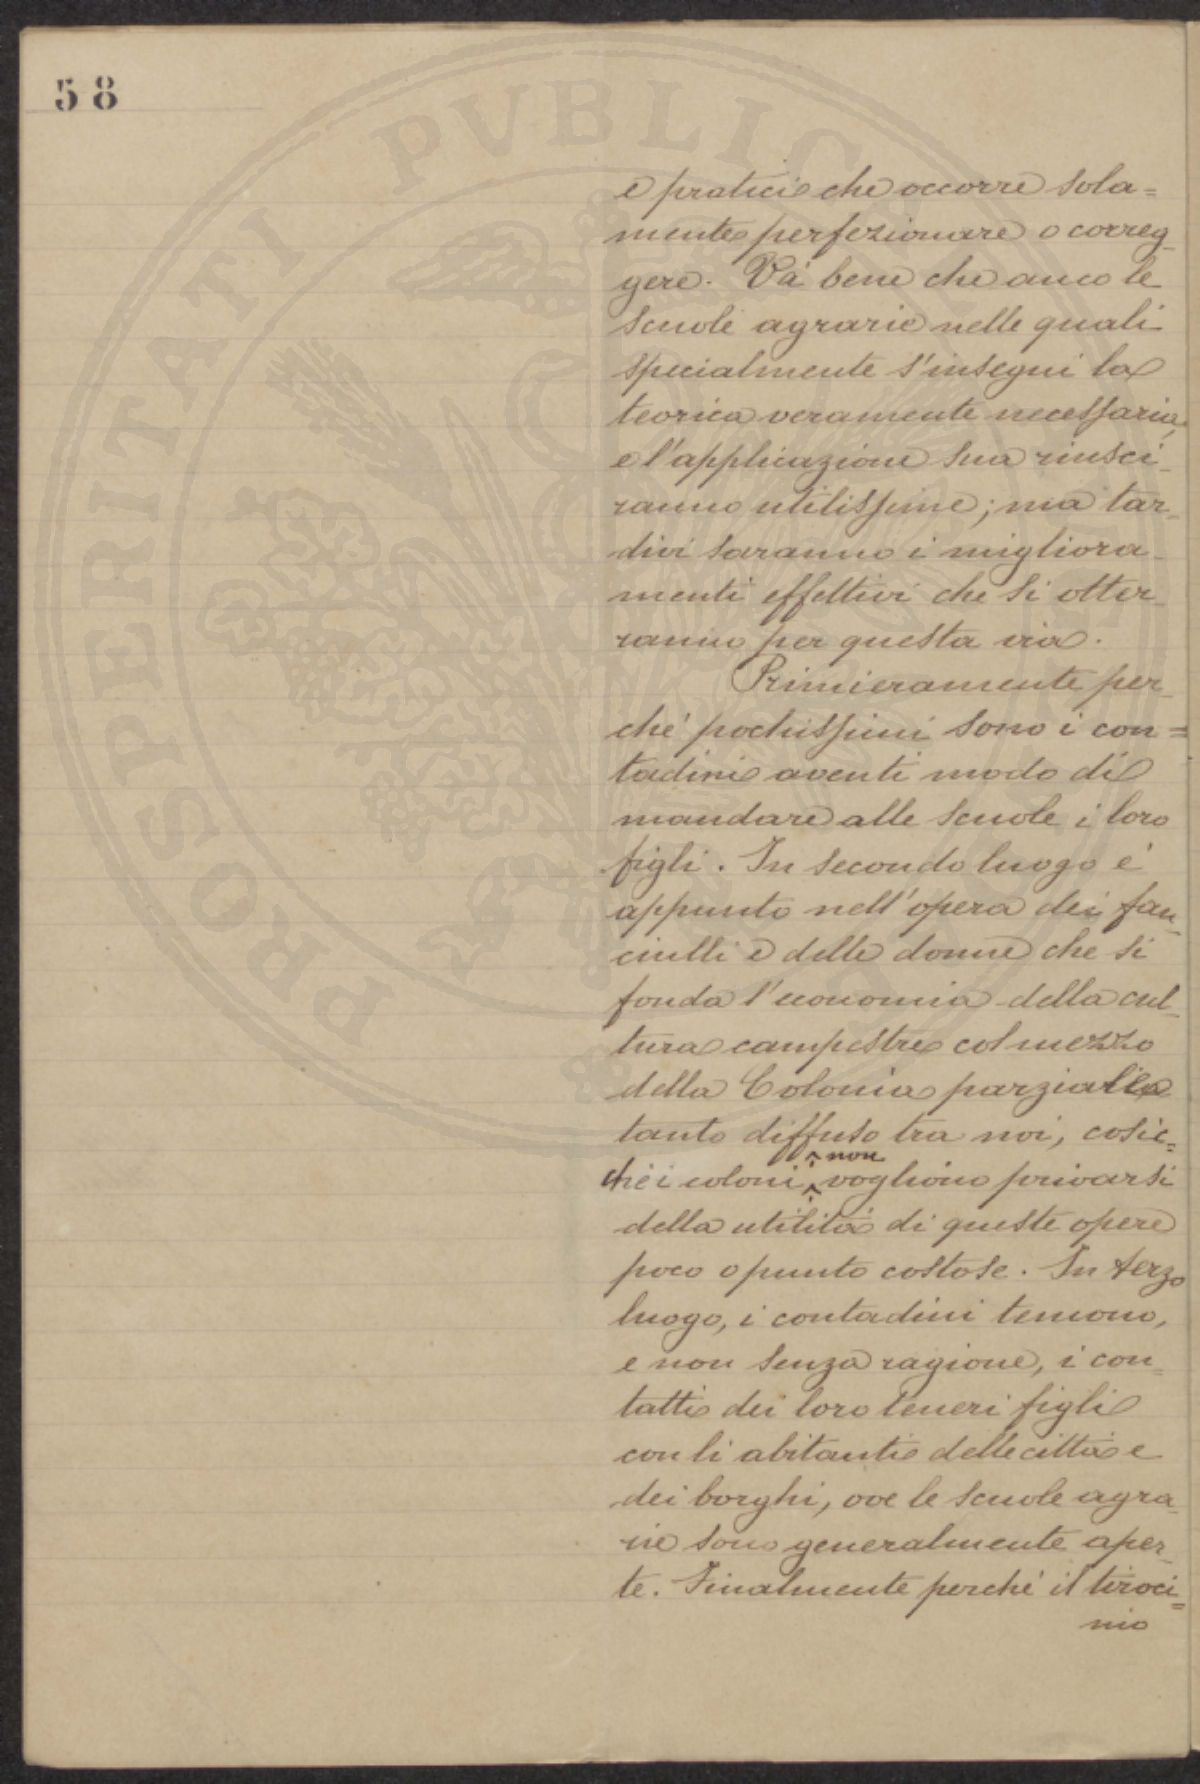 58
PROSPERITATI PVBLIC
e pratici che occorre sola=
mente perfezionare o correg-
gere. Va' bene che anco le
scuole agrarie nelle quali
specialmente s'insegni la
teorica veramente necessaria,
e l'applicazione sua riusci-
ranno utilissime; ma tar-
divi saranno i migliora-
menti effettivi che si otter-
ranno per questa via.
Primieramente per-
chè pochissimi sono i con=
tadini aventi modo di
mandare alle scuole i loro
figli. In secondo luogo è
appunto nell'opera dei fan-
ciulli e delle donne che si
fonda l'economia della cul-
tura campestre col mezzo
della Colonia parziaria
tanto diffuso tra noi, cosic=
chè i coloni non vogliono privarsi
della utilità di queste opere
poco o punto costose. In terzo
luogo, i contadini temono,
e non senza ragione, i con-
tatti dei loro teneri figli
con li abitanti delle città e
dei borghi, ove le scuole agra-
rie sono generalmente aper-
te. Finalmente perchè il tiroci=
nio